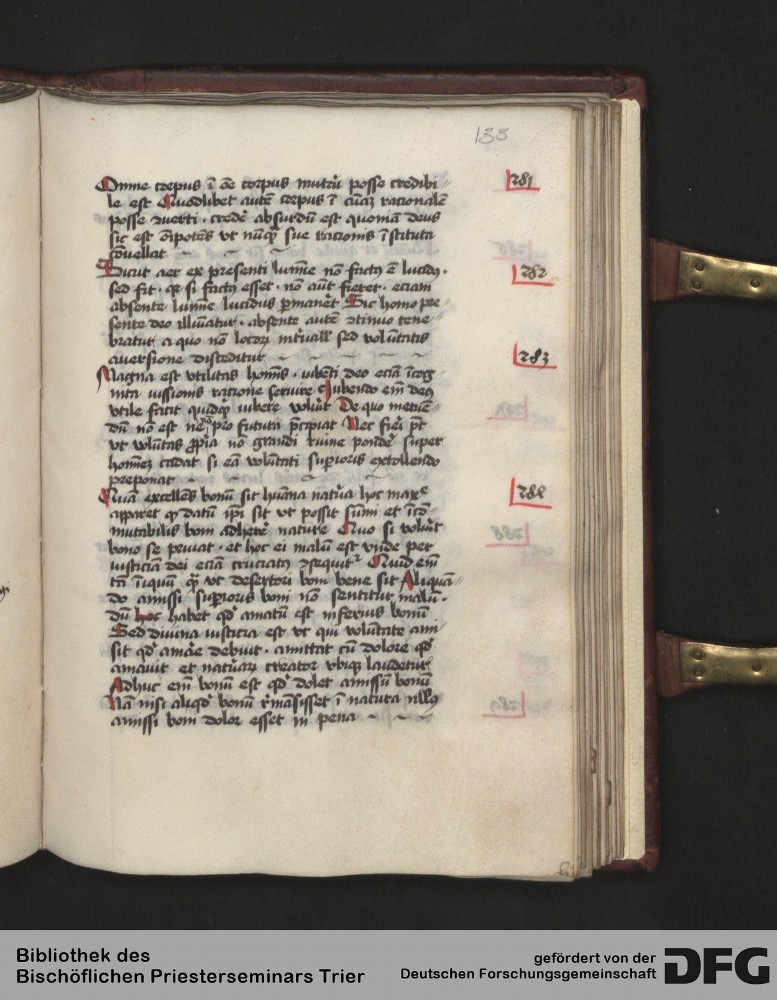 133
Omne corpus ī oē corpus mutari posse credibi
le est Quodlibet autē corpus ī aīaȝ racionalē
posse ɔuerti · crede absurdū est quoniā deus
sic est oīpotēs vt nūqȝ sue racionis īstituta
ɔuellat
281
Sicut aer ex presenti lumīe nō factꝯ ē lucidꝯ ·
sed fit · qꝛ si factꝯ esset · nō aūt fieret · eciam
absente lumīe lucidus ꝑmaneret Sic homo pre
sente deo illuīatur · absente autē ɔtinuo tene
bratur a quo nō locoꝝ interuall' sed volūtatis
auersione disceditur
282
Magna est vtilitas homīs · iubēti deo eciā īcog
nita iussionis racione seruire Iubendo em̄ deꝯ
vtile facit quidqͥd iubere voluerit De quo metuē
dū nō est ne nō pro futura precipiat Nec fieri pōt
vt volūtas ꝓpria nō grandi ruine pondere super
homineȝ cadat si eā volūtati suꝑioris extollendo
preponat
283
Quia excellēs bonū sit hūana natura hoc maxīe
apparet qꝫ datū ipī sit vt possit sūmi et īcō
mutabilis boni adherere nature Quo si voluerit
bono se priuat · et hoc ei malū est vnde per
iusticiā dei eciā cruciatꝯ ɔsequitur Quid em̄
tā iniquū qͣȝ vt desertori boni bene sit Aliquā
do amissi suꝑioris boni nō sentitur malū ·
dū hoc habet qd' amatū est inferius bonū
Sed diuina iusticia est vt qui volūtate ami
sit qd' amare debuit · amittat cū dolore qd'
amauit et naturaꝝ creator vbiqꝫ laudetur
Adhuc em̄ bonū est qd' dolet amissū bonū
Nā nisi aliqd' bonū remāsisset ī natura nullꝯ
amissi boni dolor esset in pena
284
Bibliothek des
Bischöflichen Priesterseminars Trier
gefördert von der
Deutschen Forschungsgemeinschaft
DFG